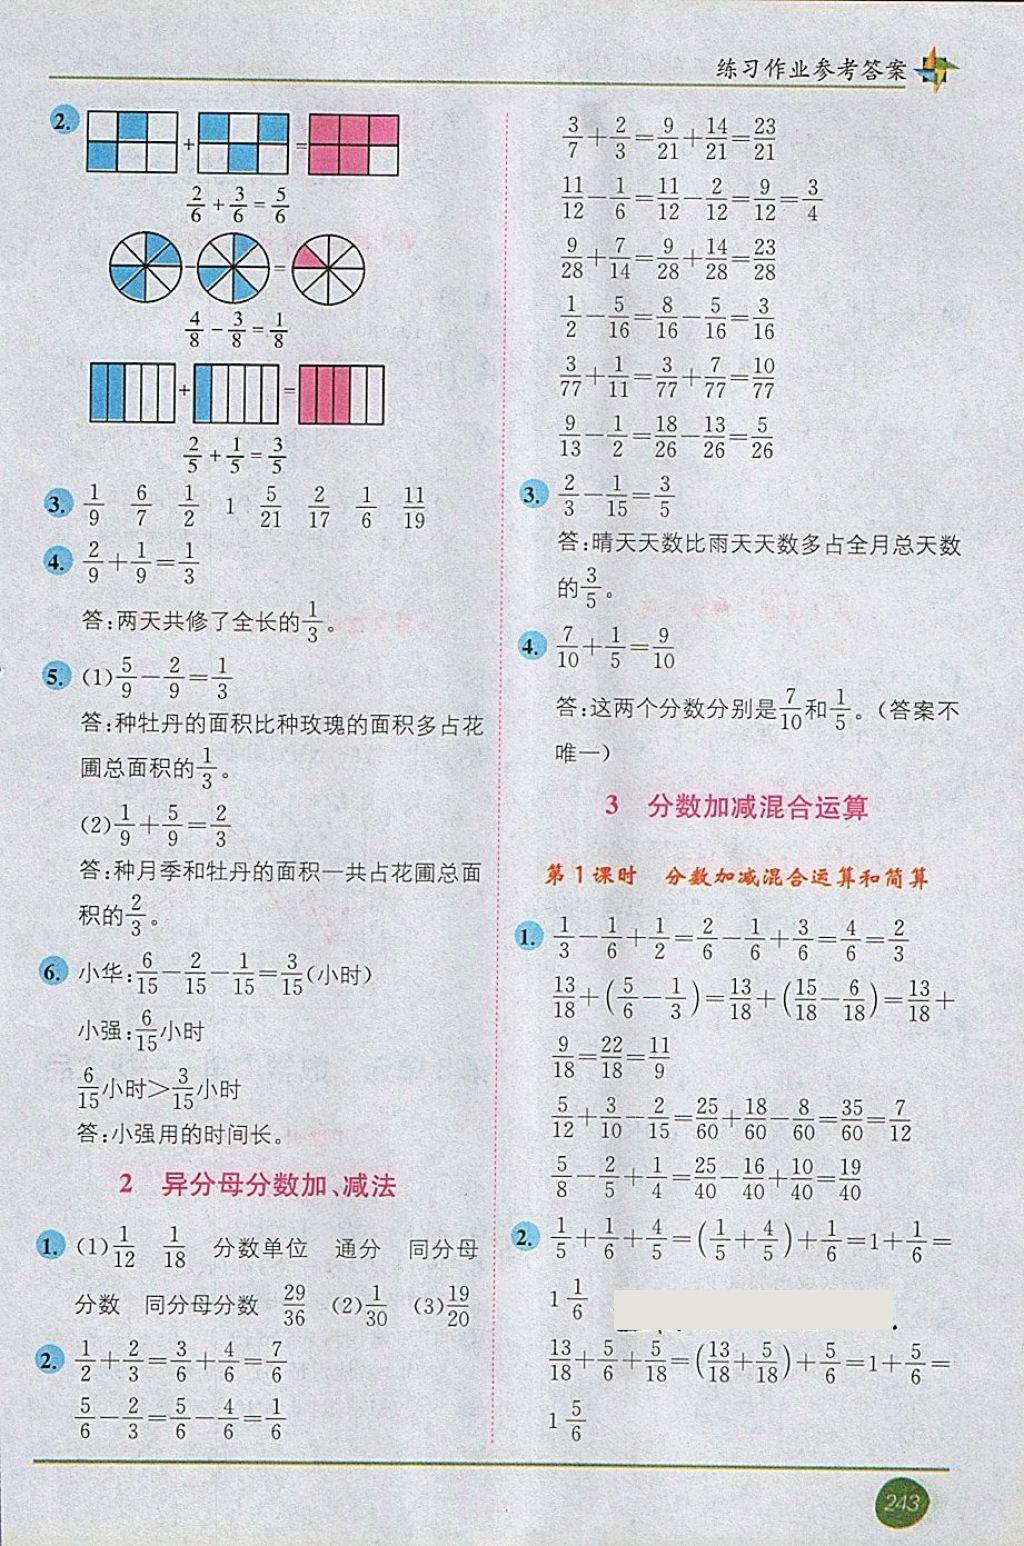 练习作业参考答案
2.
2/6+3/6=5/6
4/8-3/8=1/8
2/5+1/5=3/5
3. 1/9 6/7 1/2 1 5/21 2/17 1/6 11/19
4. 2/9+1/9=1/3
答:两天共修了全长的1/3。
5. (1)5/9-2/9=1/3
答:种牡丹的面积比种玫瑰的面积多占花
圃总面积的1/3。
(2)1/9+5/9=2/3
答:种月季和牡丹的面积一共占花圃总面
积的2/3。
6. 小华:6/15-2/15-1/15=3/15(小时)
小强:6/15小时
6/15小时>3/15小时
答:小强用的时间长。
2 异分母分数加、减法
1. (1)1/12 1/18 分数单位 通分 同分母
分数 同分母分数 29/36 (2)1/30 (3)19/20
2. 1/2+2/3=3/6+4/6=7/6
5/6-2/3=5/6-4/6=1/6
3/7+2/3=9/21+14/21=23/21
11/12-1/6=11/12-2/12=9/12=3/4
9/28+7/14=9/28+14/28=23/28
1/2-5/16=8/16-5/16=3/16
3/77+1/11=3/77+7/77=10/77
9/13-1/2=18/26-13/26=5/26
3. 2/3-1/15=3/5
答:晴天天数比雨天天数多占全月总天数
的3/5。
4. 7/10+1/5=9/10
答:这两个分数分别是7/10和1/5。(答案不
唯一)
3 分数加减混合运算
第1课时 分数加减混合运算和简算
1. 1/3-1/6+1/2=2/6-1/6+3/6=4/6=2/3
13/18+(5/6-1/3)=13/18+(15/18-6/18)=13/18+
9/18=22/18=11/9
5/12+3/10-2/15=25/60+18/60-8/60=35/60=7/12
5/8-2/5+1/4=25/40-16/40+10/40=19/40
2. 1/5+1/6+4/5=(1/5+4/5)+1/6=1+1/6=
1 1/6
13/18+5/6+5/18=(13/18+5/18)+5/6=1+5/6=
1 5/6
243